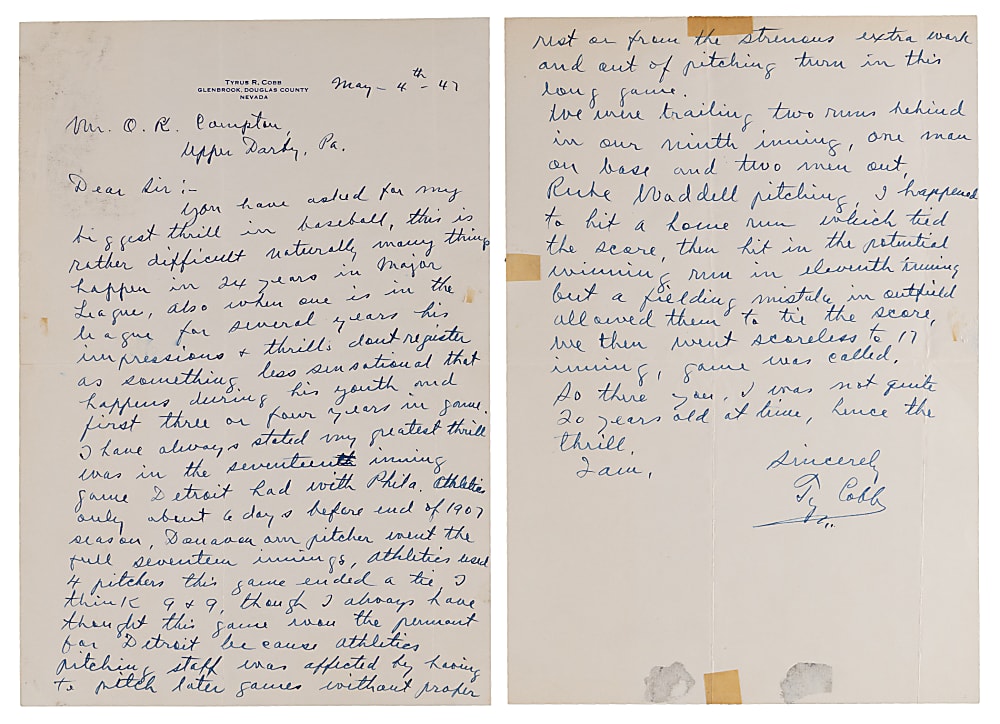 TYRUS R. COBB
GLENBROOK, DOUGLAS COUNTY
NEVADA
May - 4th - 47
Mr. O. K. Compton,
Upper Darby, Pa.
Dear Sir:-
You have asked for my
biggest thrill in baseball, this is
rather difficult naturally many things
happen in 24 years in Major
League, also when one is in the
league for several years his
impressions & thrills dont register
as something less sensational that
happens during his youth and
first three or four years in game.
I have always stated my greatest thrill
was in the seventeenth inning
game Detroit had with Phila. Athletics
only about 6 days before end of 1907
season, Donavan our pitcher went the
full seventeen innings, Athletics used
4 pitchers this game ended a tie, I
think 9 & 9, though I always have
thought this game won the pennant
for Detroit because Athletics
pitching staff was affected by having
to pitch later games without proper
rest or from the strenous extra work
and out of pitching turn in this
long game.
We were trailing two runs behind
in our ninth inning, one man
on base and two men out,
Rube Waddell pitching, I happened
to hit a home run which tied
the score, then hit in the potential
winning run in eleventh inning
but a fielding mistake in outfield
allowed them to tie the score,
we then went scoreless to 17
inning, game was called.
So there you, I was not quite
20 years old at time, hence the
thrill.
I am,
Sincerely
Ty Cobb